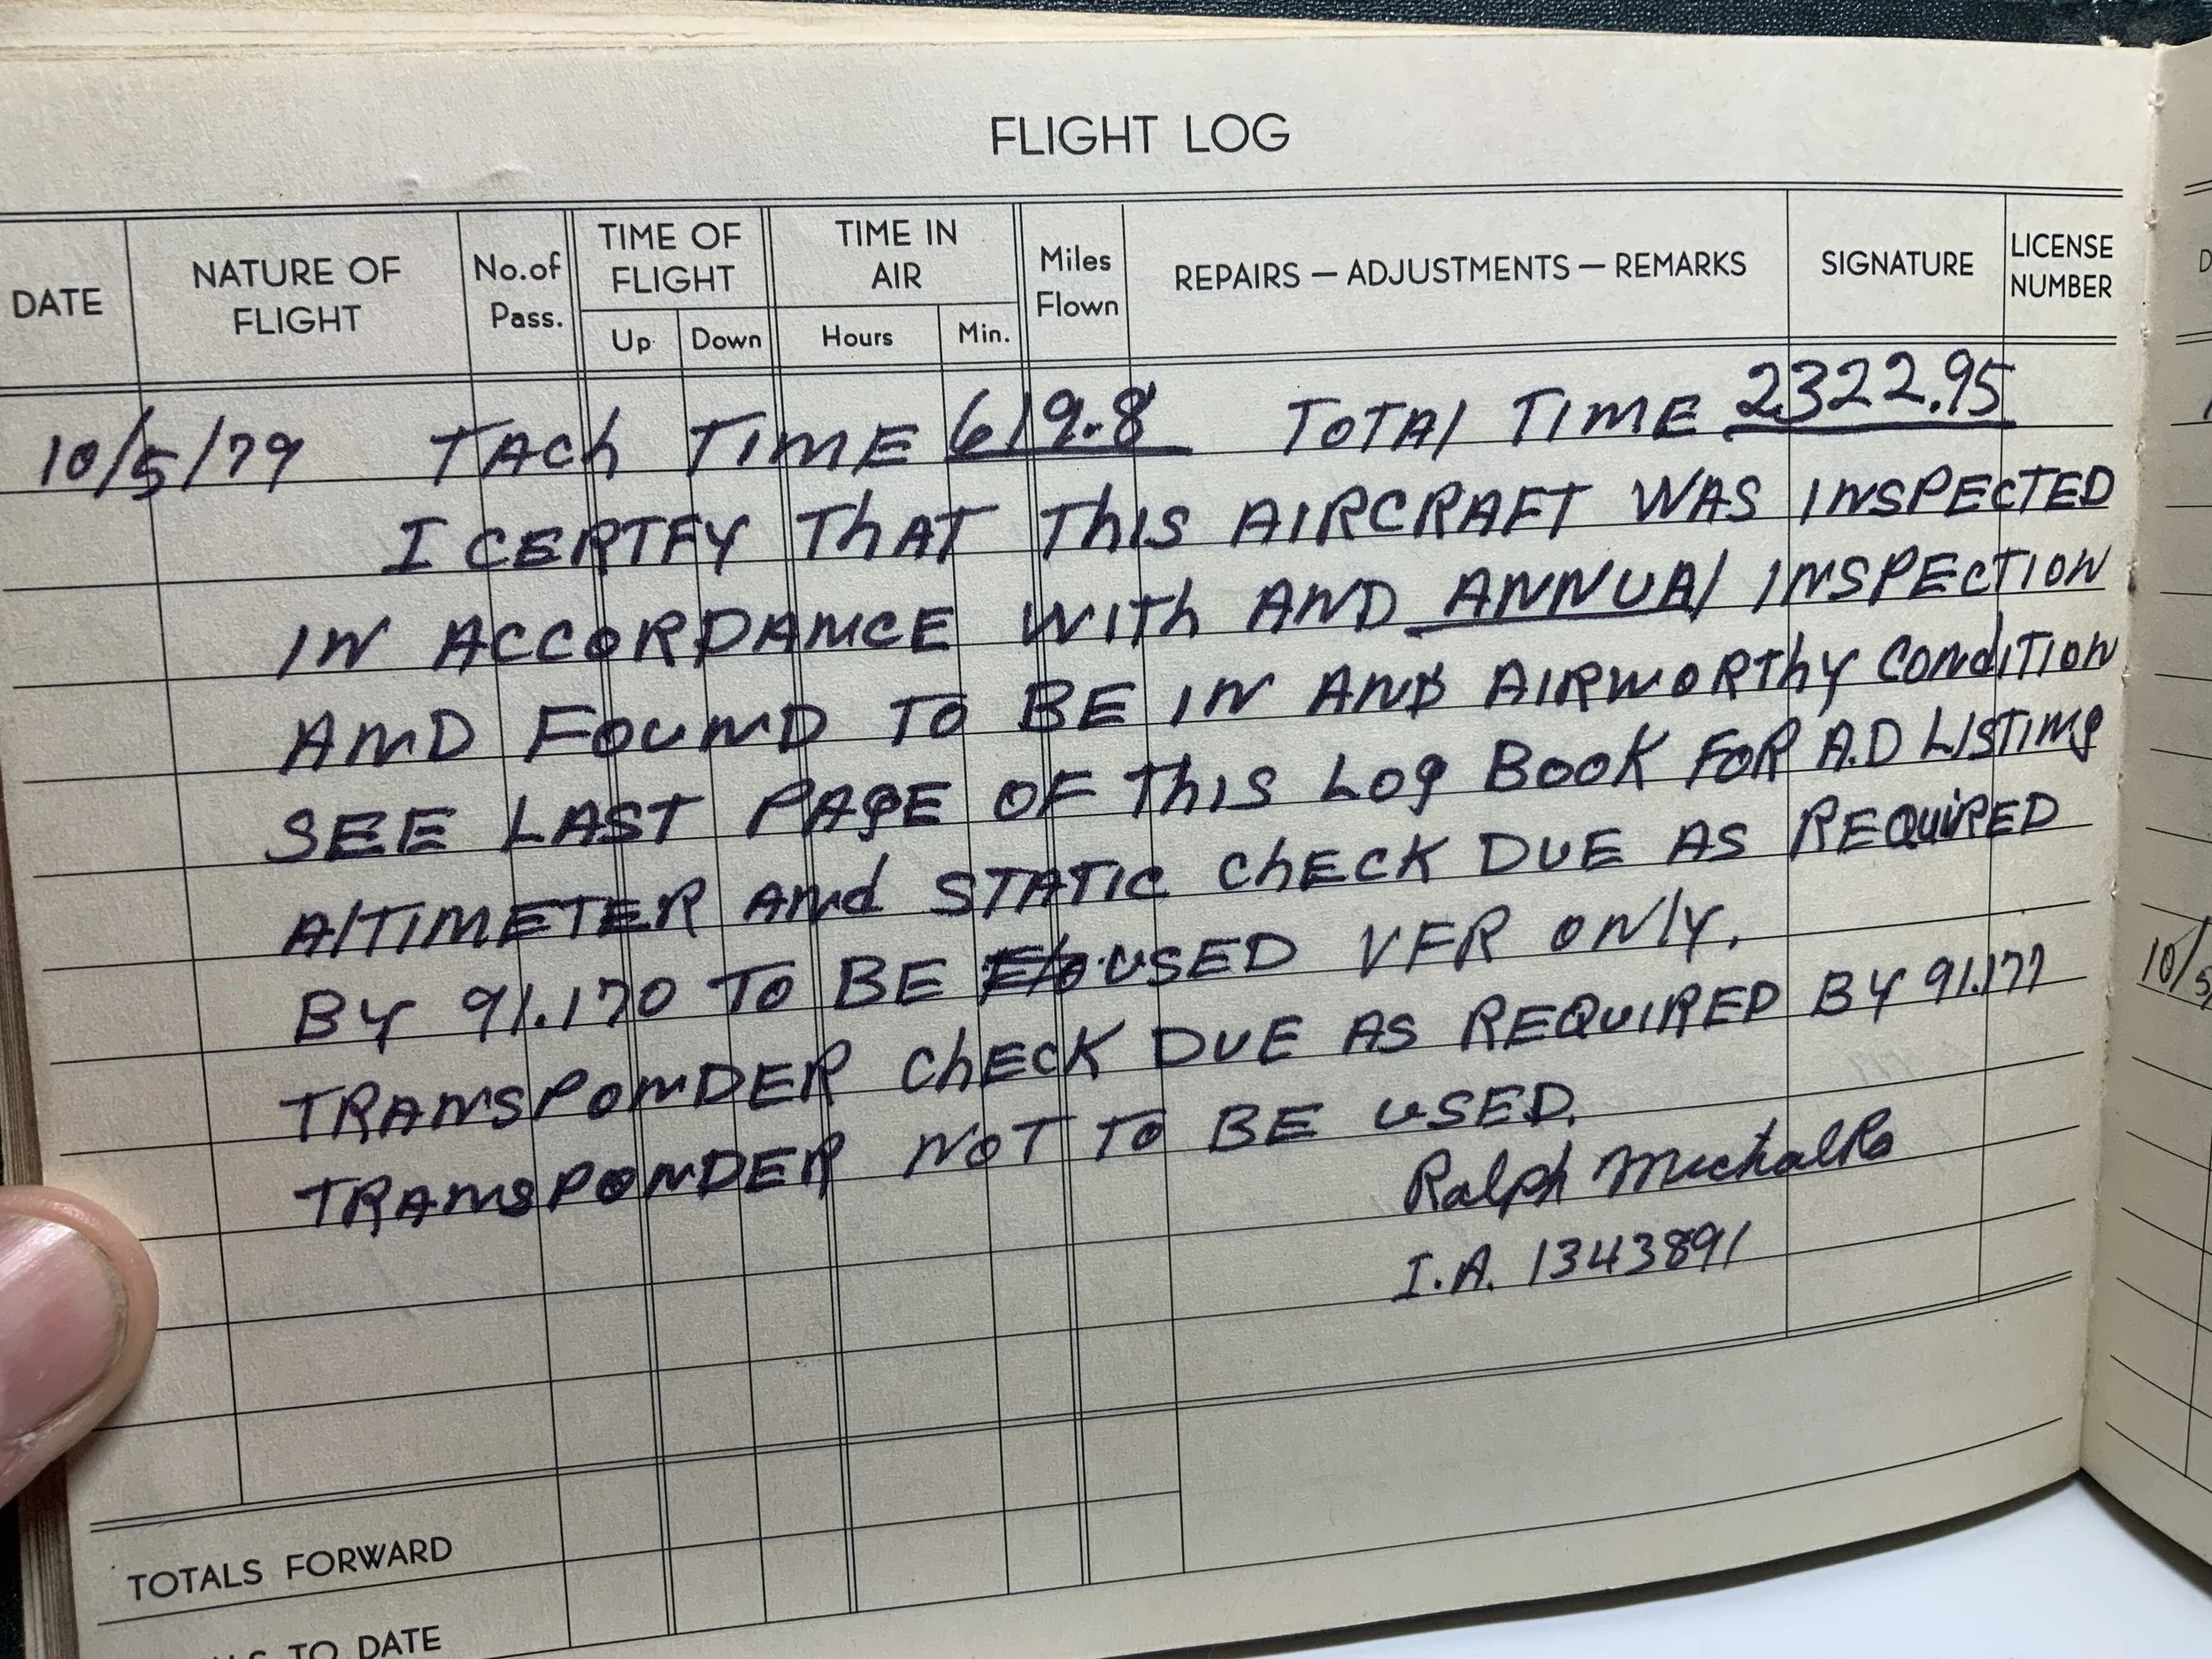 FLIGHT LOG
DATE
NATURE OF FLIGHT
No. of Pass.
TIME OF FLIGHT
Up
Down
TIME IN AIR
Hours
Min.
Miles Flown
REPAIRS — ADJUSTMENTS — REMARKS
SIGNATURE
LICENSE NUMBER
10/5/79 TACh TIME 619.8 TOTAl TIME 2322.95
I CERTFY ThAT ThIS AIRCRAFT WAS INSPEcTED
IN ACCORDANCE WITh AND ANNUAl INSPEcTION
AND FOUND TO BE IN AND AIRWORThy CONdITION
SEE LAST PAgE OF ThIS LOg BOOK FOR A.D LISTINg
AlTIMETER ANd STATIC ChECK DUE AS REQUiRED
BY 91.170 TO BE USED VFR ONly.
TRANSPONDER ChEcK DUE AS REQUIRED BY 91.177
TRANSPONDER NOT TO BE USED.
Ralph Michalko
I.A. 1343891
TOTALS FORWARD
TO DATE
10/5